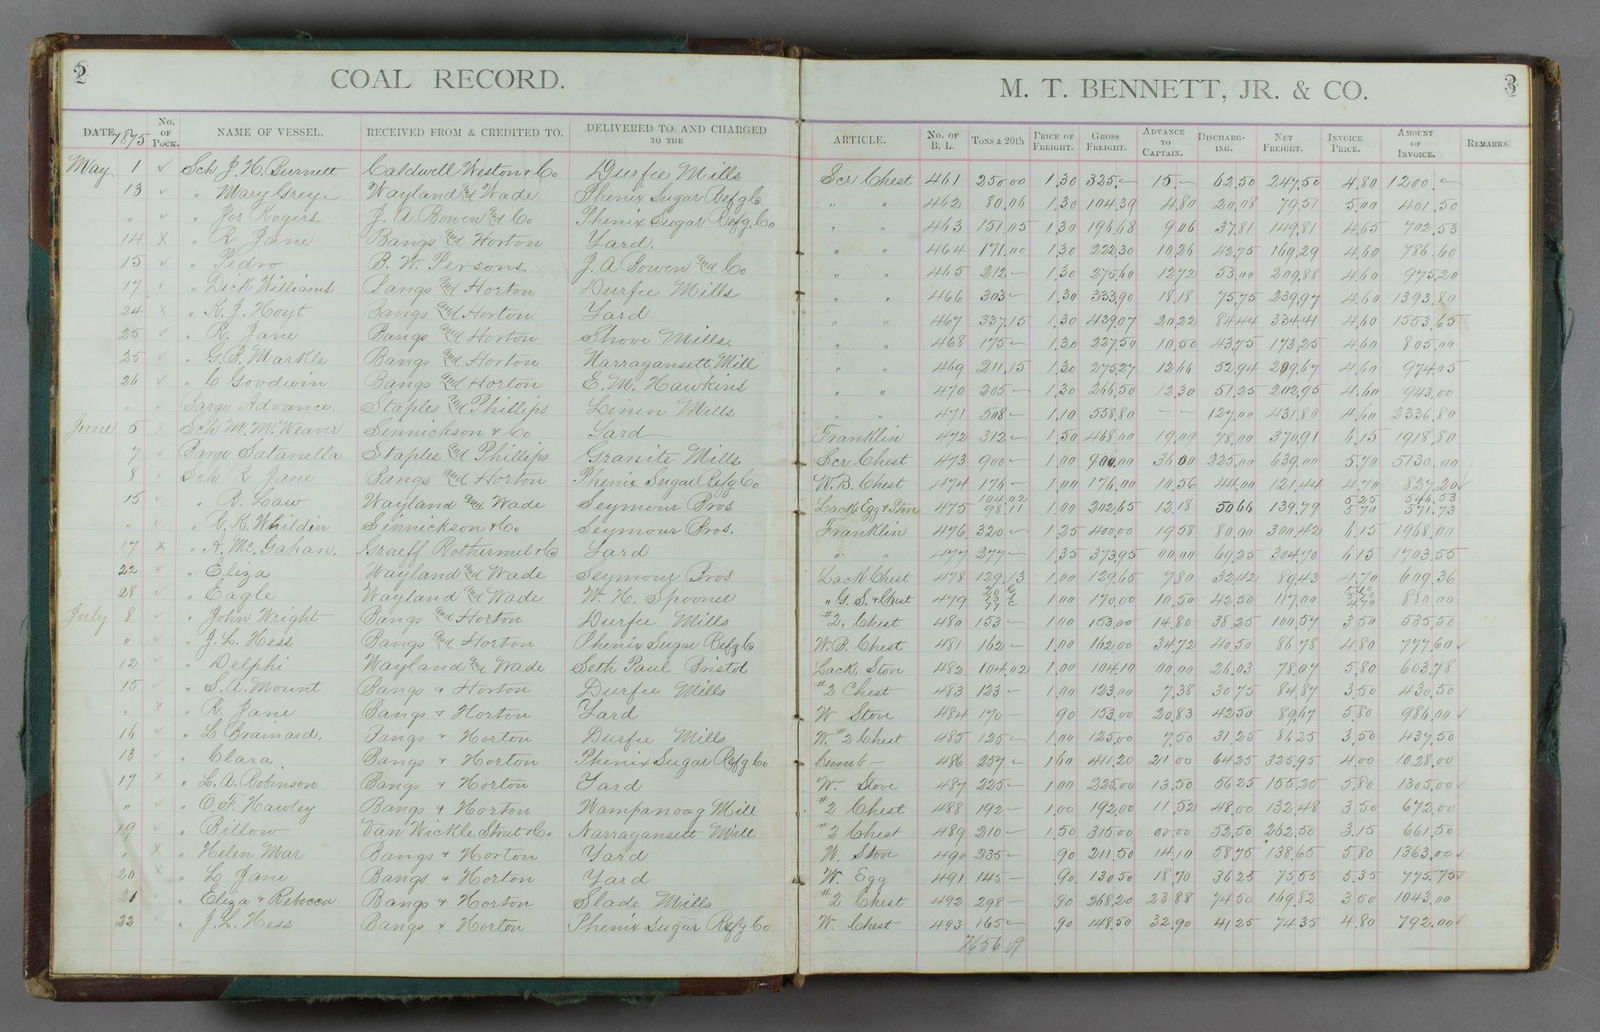 2 COAL RECORD. M. T. BENNETT, JR. & CO. 3
DATE 1875 No. OF POCK. NAME OF VESSEL. RECEIVED FROM & CREDITED TO. DELIVERED TO AND CHARGED TO THE ARTICLE. No. OF B. L. TONS & 20th PRICE OF FREIGHT. GROSS FREIGHT. ADVANCE TO CAPTAIN. DISCHARGING. NET FREIGHT. INVOICE PRICE. AMOUNT OF INVOICE. REMARKS.
May 1 ✓ Sch J. H. Burnett Caldwell Weston & Co Durfee Mills Scr Chest 461 250 00 1.30 325.– 15.– 62.50 247.50 4.80 1200.–
13 ✓ " Mary Grey. Wayland and Wade Phenix Sugar Refg Co " " 462 80.06 1.30 104.39 4.80 20.08 79.51 5.00 401.50
" ✓ " Jos Rogers J. A. Bowen and Co Phenix Sugar Refg. Co " " 463 151.05 1.30 196.68 9.06 37.81 149.81 4.65 702.53
14 x " R Jane Bangs and Horton Yard. " " 464 171.00 1.30 222.30 10.26 42.75 169.29 4.60 786.60
15 ✓ " Pedro B. W. Persons J. A Bowen and Co " " 465 212 – 1.30 275.60 12.72 53.00 209.88 4.60 975.20
17 ✓ " Dick Williams Bangs and Horton Durfee Mills " " 466 303 – 1.30 393.90 18.18 75.75 239.97 4.60 1393.80
24 x " K. J. Hoyt Bangs and Horton Yard " " 467 337.15 1.30 439.07 20.22 84.44 334.41 4.60 1553.65
25 ✓ " R. Jane Bangs and Horton Shove Mills. " " 468 175 – 1.30 227.50 10.50 43.75 173.25 4.60 805.00
25 ✓ " G. P. Markle Bangs and Horton Narragansett Mill " " 469 211.15 1.30 275.27 12.66 52.94 209.67 4.60 974.05
26 ✓ " C Goodwin Bangs and Horton E. M. Hawkins " " 470 205 – 1.30 266.50 12.30 51.25 202.95 4.60 943.00
" ✓ Barge Advance. Staples and Phillips Linen Mills " " 471 508 – 1.10 558.80 – – 127.00 431.80 4.60 2336.80
June 5 x Sch M. M. Weaver Sinnickson & Co Yard Franklin 472 312 – 1.50 468.00 19.09 78.00 370.91 6.15 1918.80
7 ✓ Barge Satanella Staples and Phillips Granite Mills Scr Chest 473 900 – 1.00 900.00 36 00 225.00 639.00 5.70 5130.00
8 ✓ Sch R Jane Bangs and Horton Phenix Sugar Refg Co W.B. Chest 474 176 – 1.00 176.00 10.56 44.00 121.44 4.70 827.20 ✓
15 ✓ " R. Law Wayland and Wade Seymour Bros Lack Egg & Stove 475 104.02 98.11 1.00 202.65 12.18 50.66 139.79 5.25 5.70 546.53 571.73
" ✓ " R. K. Whildin Sinnickson & Co Seymour Bros. Franklin 476 320 – 1.25 400.00 19.58 80.00 300.42 6.15 1968.00
17 x " A. Mc. Gahan. Graeff Rothermel & Co Yard " " 477 277 – 1.35 373.95 00.00 69.25 304.70 6.15 1703.55
22 ✓ " Eliza Wayland and Wade Seymour Bros Lack Chest 478 129.13 1.00 129.65 7.80 32.42 89.43 4.70 609.36
28 ✓ " Eagle Wayland and Wade W. H. Spooner " G. S. & Chest 479 1.00 170.00 10.50 42.50 117.00 880.00
July 8 ✓ " John Wright Bangs and Horton Durfee Mills #2. Chest 480 153 – 1.00 153.00 14.80 38.25 100.57 3.50 535.50
" ✓ " J. L. Hess Bangs and Horton Phenix Sugar Refg Co W.B. Chest 481 162 – 1.00 162.00 34.72 40.50 86.78 4.80 777.60 ✓
12 ✓ " Delphi Wayland and Wade Seth Paul Bristol Lack. Stove 482 104.02 1.00 104.10 00.00 26.03 78.07 5.80 603.78
15 ✓ " S. A. Mount Bangs & Horton Durfee Mills #2 Chest 483 123 – 1.00 123.00 7.38 30.75 84.87 3.50 430.50
" x " R. Jane Bangs & Horton Yard W Stove 484 170 – .90 153.00 20.83 42.50 89.67 5.80 986.00 ✓
16 ✓ " L Brainard. Bangs & Horton Durfee Mills W. #2 Chest 485 125 – 1.00 125.00 7.50 31.25 86.25 3.50 437.50
13 ✓ " Clara. Bangs & Horton Phenix Sugar Refg Co Cumb – 486 257 – 1.60 411.20 21.00 64.25 325.95 4.00 1028.00
17 x " L. A. Robinson Bangs & Horton Yard W. Stove 487 225 – 1.00 225.00 13.50 56.25 155.25 5.80 1305.00 ✓
" ✓ " O. F. Hawley Bangs & Horton Wampanoag Mill #2 Chest 488 192 – 1.00 192.00 11.52 48.00 132.48 3.50 672.00
19 ✓ " Billow Van Wickle Stout & Co Narragansett Mill #2 Chest 489 210 – 1.50 315.00 00.00 52.50 262.50 3.15 661.50
" x " Helen Mar Bangs & Horton Yard W. Stove 490 235 – .90 211.50 14.10 58.75 138.65 5.80 1363.00 ✓
20 x " L Jane Bangs & Horton Yard W. Egg 491 145 – .90 130.50 18.70 36.25 75.55 5.35 775.75 ✓
21 ✓ " Eliza & Rebecca Bangs & Horton Slade Mills #2 Chest 492 298 – .90 268.20 23.88 74.50 169.82 3.50 1043.00
22 ✓ " J. L. Hess Bangs & Horton Phenix Sugar Refg Co W. Chest 493 165 – .90 148.50 32.90 41.25 74.35 4.80 792.00 ✓
7656 09